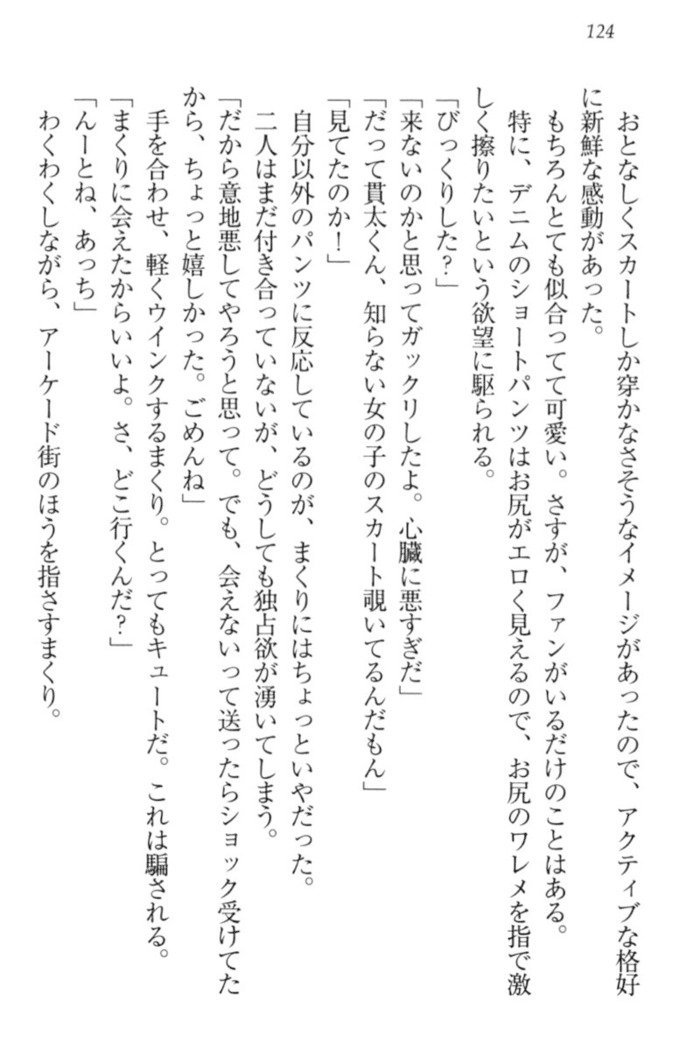 124
おとなしくスカートしか穿かなさそうなイメージがあったので、アクティブな格好
に新鮮な感動があった。
もちろんとても似合ってて可愛い。さすが、ファンがいるだけのことはある。
特に、デニムのショートパンツはお尻がエロく見えるので、お尻のワレメを指で激
しく擦りたいという欲望に駆られる。
「びっくりした？」
「来ないのかと思ってガックリしたよ。心臓に悪すぎだ」
「だって貫太くん、知らない女の子のスカート覗いてるんだもん」
「見てたのか！」
自分以外のパンツに反応しているのが、まくりにはちょっといやだった。
二人はまだ付き合っていないが、どうしても独占欲が湧いてしまう。
「だから意地悪してやろうと思って。でも、会えないって送ったらショック受けてた
から、ちょっと嬉しかった。ごめんね」
手を合わせ、軽くウインクするまくり。とってもキュートだ。これは騙される。
「まくりに会えたからいいよ。さ、どこ行くんだ？」
「んーとね、あっち」
わくわくしながら、アーケード街のほうを指さすまくり。